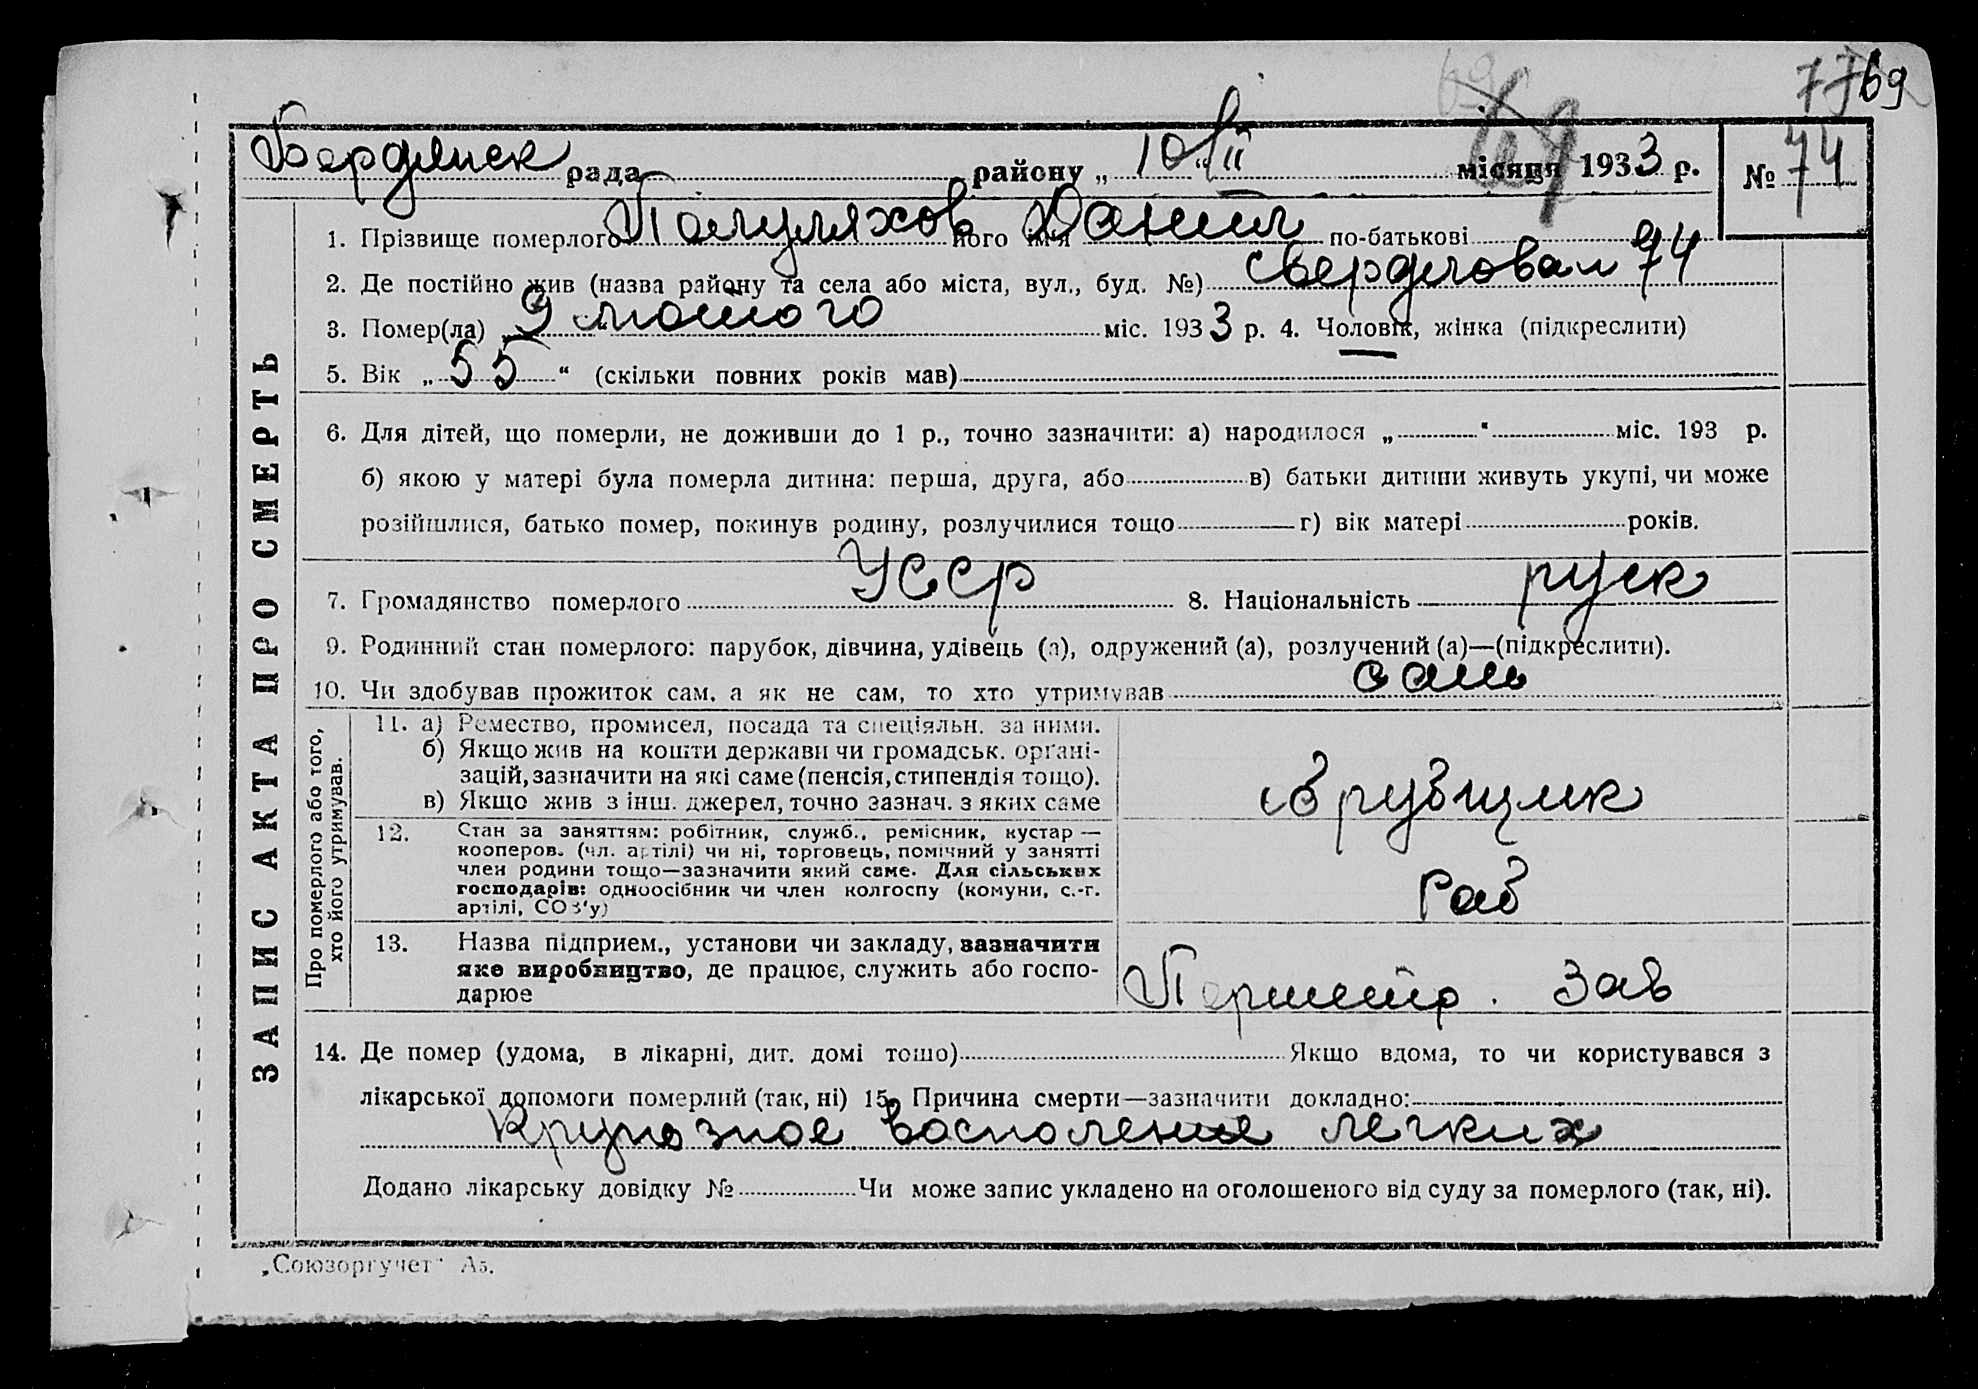 69
7769
Бердянск рада району „ 10/II місяця 1933 р. № 74
1. Прізвище померлого Полуляхов його ім'я Данил по-батькові
2. Де постійно жив (назва району та села або міста, вул., буд. №) 74
3. Помер(ла) 9 лютого міс. 1933 р. 4. Чоловік, жінка (підкреслити)
5. Вік „ 55 “ (скільки повних років мав)
6. Для дітей, що померли, не доживши до 1 р., точно зазначити: а) народилося „ “ міс. 193 р.
б) якою у матері була померла дитина: перша, друга, або в) батьки дитини живуть укупі, чи може
розійшлися, батько помер, покинув родину, розлучилися тощо г) вік матері років.
7. Громадянство померлого УССР 8. Національність руск
9. Родинний стан померлого: парубок, дівчина, удівець (а), одружений (а), розлучений (а)—(підкреслити).
10. Чи здобував прожиток сам, а як не сам, то хто утримував сам
ЗАПИС АКТА ПРО СМЕРТЬ
Про померлого або того,
хто його утримував.
11. а) Ремество, промисел, посада та спеціяльн. за ними.
б) Якщо жив на кошти держави чи громадськ. органі-
зацій, зазначити на які саме (пенсія, стипендія тощо).
в) Якщо жив з інш. джерел, точно зазнач. з яких саме
12. Стан за заняттям: робітник, служб., ремісник, кустар —
кооперов. (чл. артілі) чи ні, торговець, помічний у занятті
член родини тощо—зазначити який саме. Для сільських
господарів: одноосібник чи член колгоспу (комуни, с.-г.
артілі, СОЗ'у)
Раб
13. Назва підприєм., установи чи закладу, зазначити
яке виробництво, де працює, служить або госпо-
дарює
Зав
14. Де помер (удома, в лікарні, дит. домі тощо) Якщо вдома, то чи користувався з
лікарської допомоги померлий (так, ні) 15. Причина смерти—зазначити докладно:
Крупозное восполение легких
Додано лікарську довідку № Чи може запис укладено на оголошеного від суду за померлого (так, ні).
„Союзоргучет“ А5.